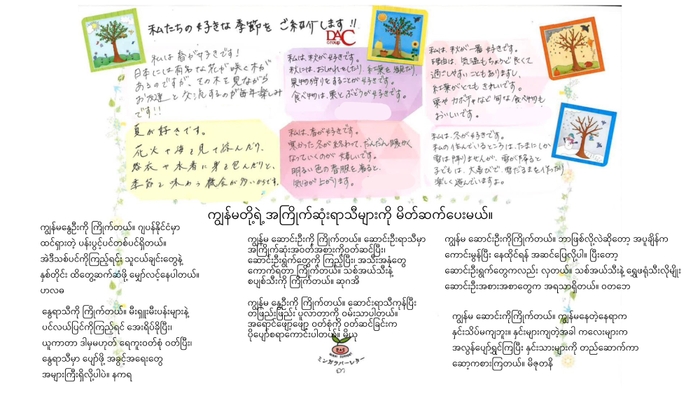 私たちの好きな季節をご紹介します!!
DAC
Group
私は春が好きです!
日本には有名な花が咲く木が
あるのですが、その木を見ながら
お友達と交流するのが毎年楽しみ
です!!
私は、秋が好きです。
秋には、おしゃれをしたり、紅葉を観たり、
果物狩りをすることが好きです。
食べ物は、栗とぶどうが好きです。
私は、秋が一番好きです。
理由は、気温もちょうど良くて
過ごしやすいこともありますし、
紅葉がとてもきれいです。
栗やカボチャなど旬な食べ物も
おいしいです。
夏が好きです。
花火や海を見て遊んだり、
浴衣や水着に身を包んだりと、
季節を味わう機会が多いからです。
私は、春が好きです。
寒かった冬が終わって、だんだん暖かく
なっていくのが嬉しいです。
明るい色の春服を着ると、
気分が上がります。
私は、冬が好きです。
私の住んでいるところは、たまにしか
雪は降りませんが、雪が降ると
子どもは、大喜びで、雪だるまを作ったり
楽しく遊んでいますよ。
ကျွန်မတို့ရဲ့အကြိုက်ဆုံးရာသီများကို မိတ်ဆက်ပေးမယ်။
ကျွန်မနွေဦးကို ကြိုက်တယ်။ ဂျပန်နိုင်ငံမှာ
ထင်ရှားတဲ့ ပန်းပွင့်ပင်တစ်ပင်ရှိတယ်။
အဲဒီသစ်ပင်ကိုကြည့်ရင်း သူငယ်ချင်းတွေနဲ့
နှစ်တိုင်း ထိတွေ့ဆက်ဆံဖို့ မျှော်လင့်နေပါတယ်။
ဟလမ
နွေရာသီကို ကြိုက်တယ်။ မီးရှူးမီးပန်းများနဲ့
ပင်လယ်ပြင်ကိုကြည့်ရင် အေးရိပ်ခိုပြီး၊
ယူကာတာ ဒါမှမဟုတ် ရေကူးဝတ်စုံ ဝတ်ပြီး၊
နွေရာသီမှာ ပျော်ဖို့ အခွင့်အရေးတွေ
အများကြီးရှိလို့ပါပဲ။ နကရ
ကျွန်မ ဆောင်းဦးကို ကြိုက်တယ်။ ဆောင်းဦးရာသီမှာ
အကြိုက်ဆုံးအဝတ်အစားကိုဝတ်ဆင်ပြီး၊
ဆောင်းဦးရွက်တွေကို ကြည့်ပြီး၊ အသီးအနှံတွေ
ကောက်ရတာ ကြိုက်တယ်။ သစ်အယ်သီးနဲ့
စပျစ်သီးကို ကြိုက်တယ်။ ဆုဂအိ
ကျွန်မ နွေဦးကို ကြိုက်တယ်။ ဆောင်းရာသီကုန်ပြီး
တဖြည်းဖြည်း ပူလာတာကို ဝမ်းသာပါတယ်။
အရောင်ဖျော့ဖျော့ ဝတ်စုံကို ဝတ်ဆင်ခြင်းက
ပိုပျော်စရာကောင်းပါတယ်။ မိယု
ကျွန်မ ဆောင်းဦးကိုကြိုက်တယ်။ ဘာဖြစ်လို့လဲဆိုတော့ အပူချိန်က
ကောင်းမွန်ပြီး နေထိုင်ရန် အဆင်ပြေလို့ပါ။ ပြီးတော့
ဆောင်းဦးရွက်တွေကလည်း လှတယ်။ သစ်အယ်သီးနဲ့ ရွှေဖရုံသီးလိုမျိုး
ဆောင်းဦးအစားအစာတွေက အရသာရှိတယ်။ ဝတဘေ
ကျွန်မ ဆောင်းကိုကြိုက်တယ်။ ကျွန်မနေတဲ့နေရာက
နှင်းသိပ်မကျဘူး။ နှင်းများကျတဲ့အခါ ကလေးများက
အလွန်ပျော်ရွှင်ကြပြီး နှင်းသားများကို တည်ဆောက်ကာ
ဆော့ကစားကြတယ်။ မိဇုတနိ
ミンガラバーレター